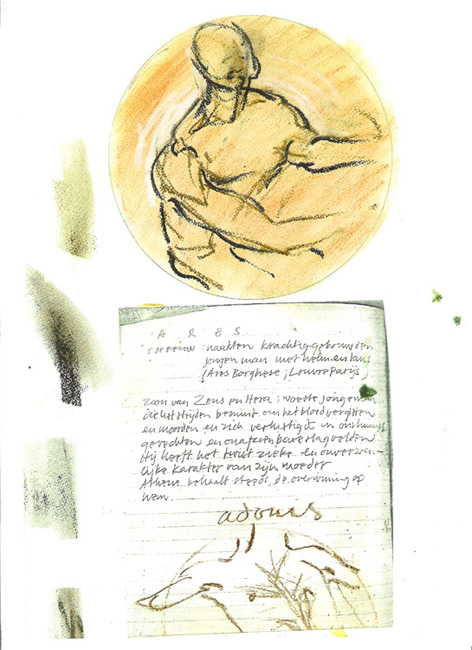 A R E S
eeuw: naakte krachtig gebouwde
jonge man met helm en lans
(Ares Borghese; Louvre Parijs)
zoon van Zeus en Hera; woeste jongeman
die het strijden bemint om het bloedvergieten
en moorden en zich verlustigt in
gevechten en slagvelden
Hij heeft het twistzieke en onverzoen-
lijke karakter van zijn moeder
Athene behaalt steeds de overwinning op
hem.
adonis